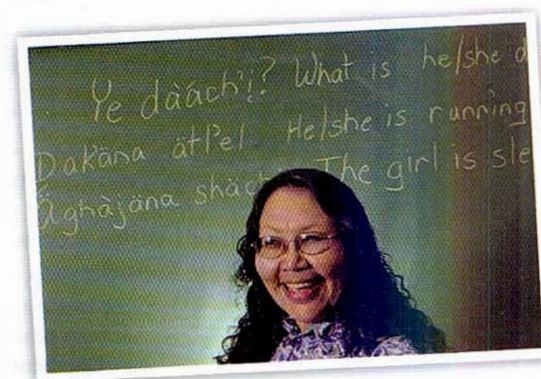 Ye dàách'i? What is he/she d
Dakäna ätl'el He/she is running
Äghàjäna shäch The girl is sle